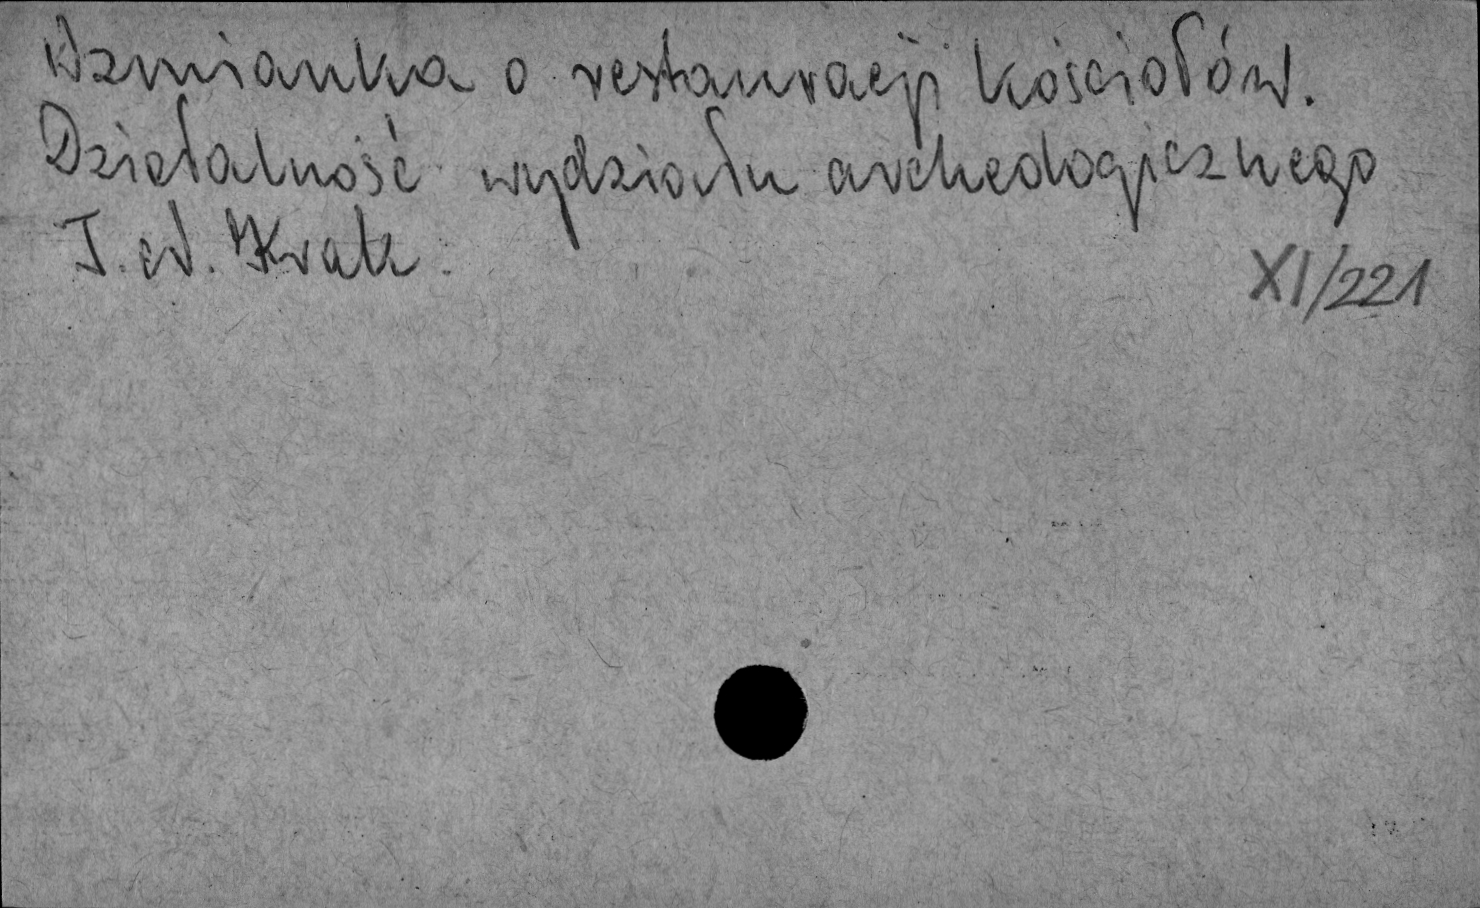 Wzmianka o restauracji kościołów.
Działalność wydziału archeologicznego
T. N. Krak.
XI/221